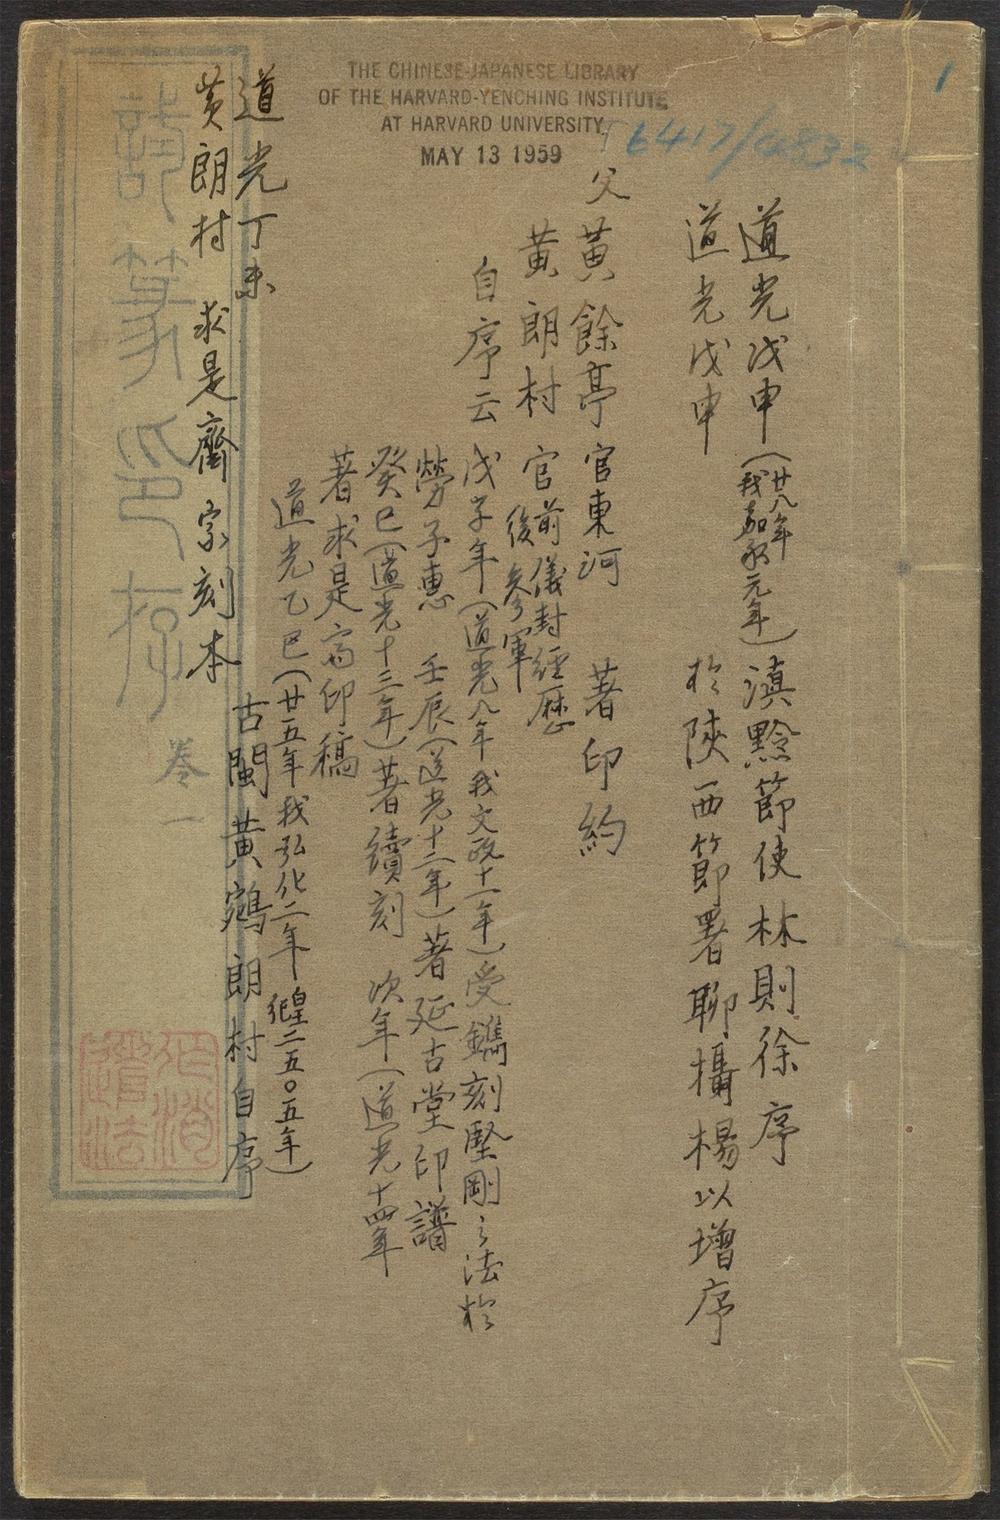 THE CHINESE-JAPANESE LIBRARY
OF THE HARVARD-YENCHING INSTITUTE
AT HARVARD UNIVERSITY
MAY 13 1959
T6417/4832
1
道光戊申(廿八年我嘉永元年)滇黔節使林則徐序
道光戊申 於陝西節署聊攝楊以增序
父黃餘亭官東河 著印約
黃朗村官前儀封經歷後參軍
自序云戊子年(道光八年我文政十一年)受鐫刻堅剛之法於
勞子惠 壬辰(道光十二年)著延古堂印譜
癸巳(道光十三年)著續刻 次年(道光十四年
著求是斋印稿
道光乙巳(廿五年我弘化二年皇紀二五〇五年)
古閩黃鵷朗村自序
道光丁未
黃朗村 求是齋家刻本
篆印存 卷一